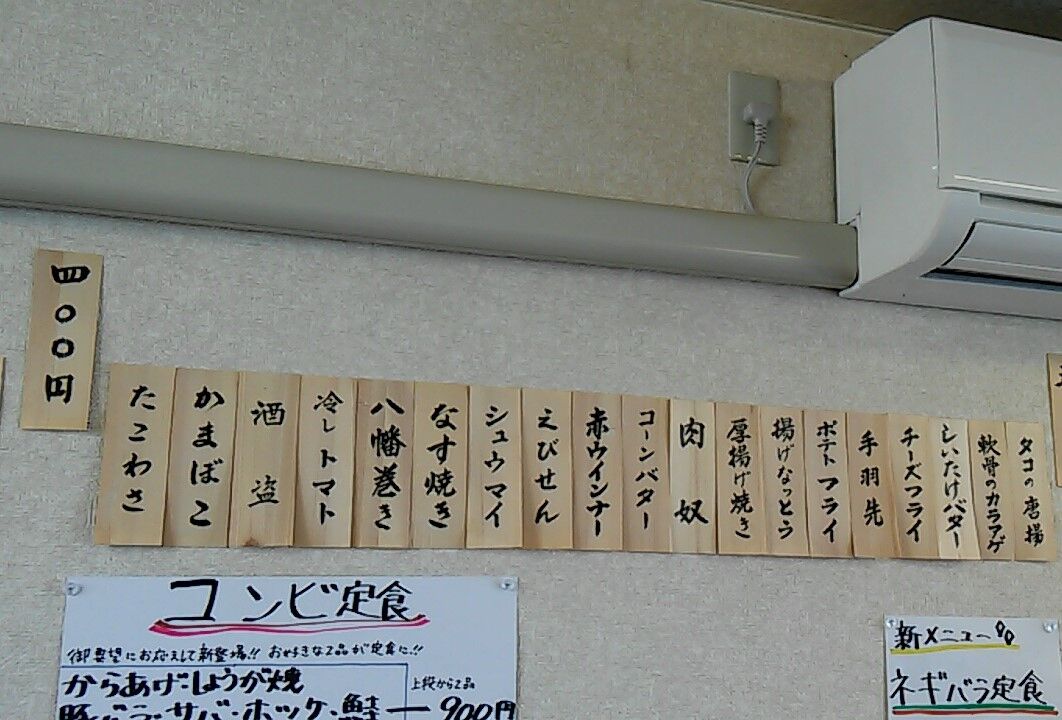 四〇〇円
タコの唐揚
軟骨のカラアゲ
しいたけバター
チーズフライ
手羽先
ポテトフライ
揚げなっとう
厚揚げ焼き
肉奴
コーンバター
赤ウインナー
えびせん
シュウマイ
なす焼き
八幡巻き
冷しトマト
酒盗
かまぼこ
たこわさ
コンビ定食
御要望にお応えして新登場!! お好きな2品が定食に!!
からあげ・しょうが焼
上段から2品
豚バラ・サバ・ホッケ・鮭 900円
新メニュー
ネギバラ定食